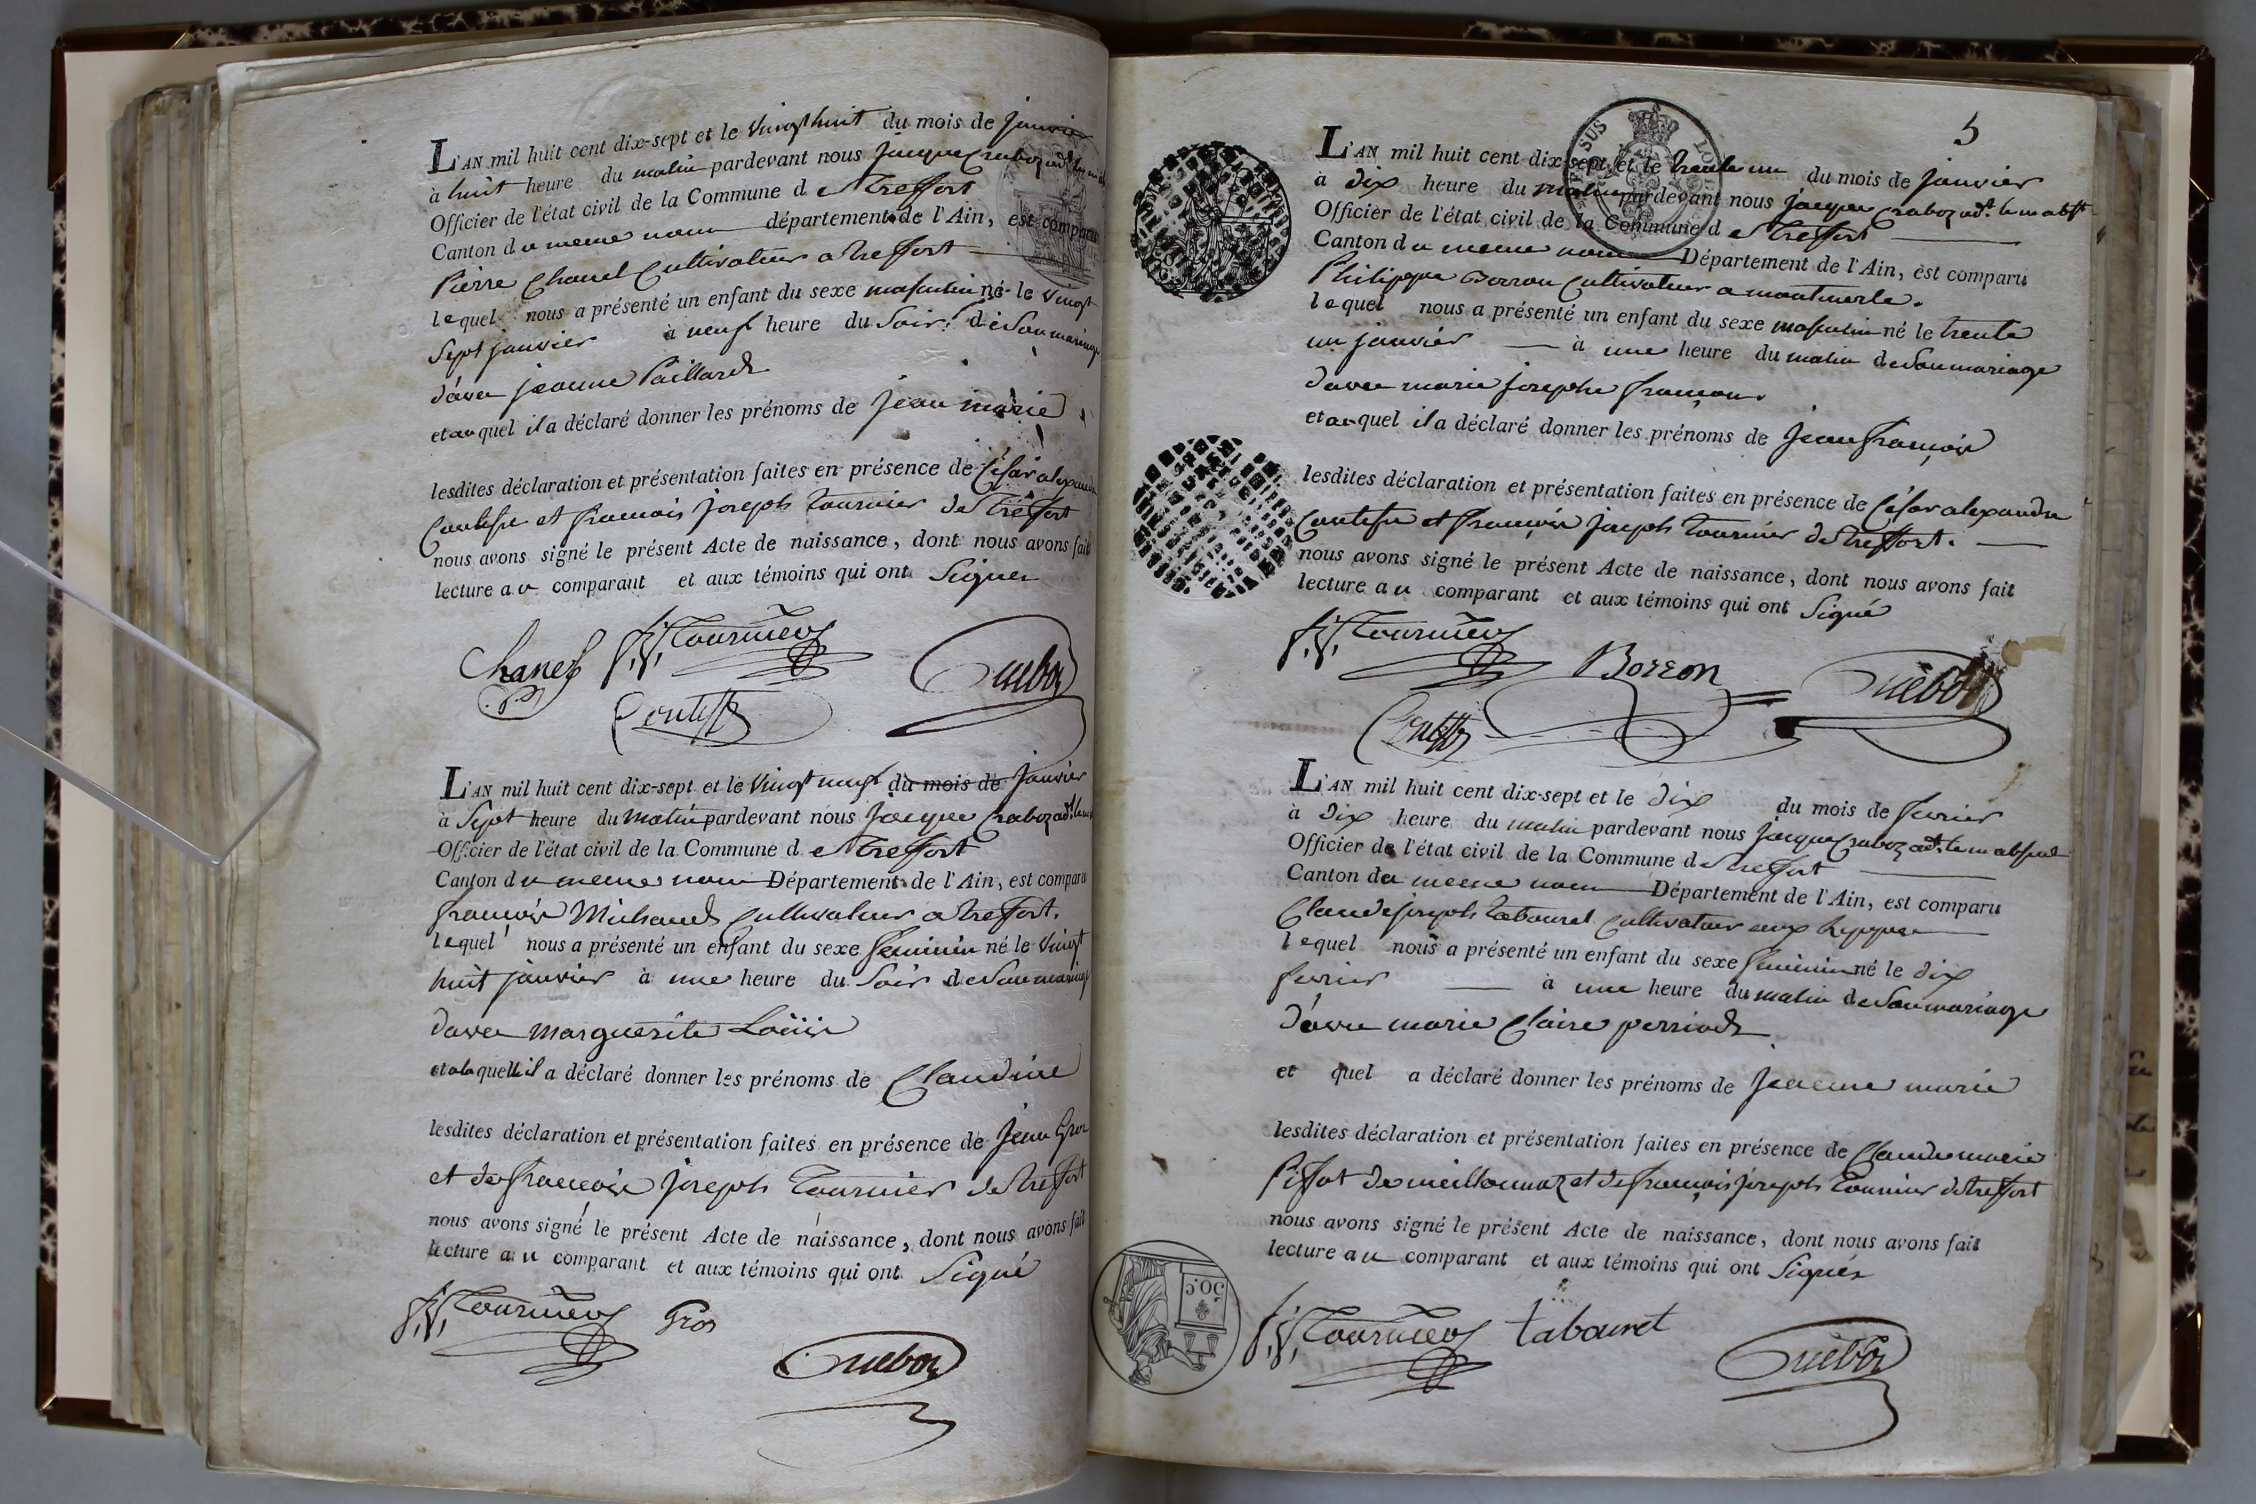 L'AN mil huit cent dix-sept et le vingt huit du mois de janvier
à huit heure du matin pardevant nous jacque Craboz adt
Officier de l'état civil de la Commune de treffort
Canton du meme nom département de l'Ain, est comparu
Pierre Chanel Cultivateur a treffort
lequel nous a présenté un enfant du sexe masculin né le vingt
sept janvier à neuf heure du soir de son mariage
davec jeanne Paillard
et auquel il a déclaré donner les prénoms de jean marie
lesdites déclaration et présentation faites en présence de César alexandre
et francois joseph tournier de treffort
nous avons signé le présent Acte de naissance, dont nous avons fait
lecture au comparant et aux témoins qui ont Signer
Chanel f. j. Tournier
L'AN mil huit cent dix-sept et le vingt neuf du mois de janvier
à Sept heure du matin pardevant nous jacque Craboz adt
Officier de l'état civil de la Commune de treffort
Canton du meme nom Département de l'Ain, est comparu
françois Michaud Cultivateur a treffort.
lequel nous a présenté un enfant du sexe feminin né le vingt
huit janvier à une heure du Soir de son mariage
davec marguerite Loüis
et alaquelle il a déclaré donner les prénoms de Claudine
lesdites déclaration et présentation faites en présence de jean Gros
et de françois joseph Tournier de treffort
nous avons signé le présent Acte de naissance, dont nous avons fait
lecture au comparant et aux témoins qui ont Signé
f. j. Tournier Gros
5
L'AN mil huit cent dix-sept et le trente un du mois de janvier
à dix heure du matin pardevant nous jacque Craboz adt
Officier de l'état civil de la Commune de treffort
Canton du meme nom Département de l'Ain, est comparu
Philippe Borron Cultivateur a montmerle.
lequel nous a présenté un enfant du sexe masculin né le trente
un janvier à une heure du matin de son mariage
davec marie josephe françon.
et auquel il a déclaré donner les prénoms de jean françois
lesdites déclaration et présentation faites en présence de César alexandre
et françois joseph tournier de treffort.
nous avons signé le présent Acte de naissance, dont nous avons fait
lecture au comparant et aux témoins qui ont Signé
f. j. Tournier Borron
L'AN mil huit cent dix-sept et le dix du mois de fevrier
à dix heure du matin pardevant nous jacque Craboz adt
Officier de l'état civil de la Commune de treffort
Canton du meme nom Département de l'Ain, est comparu
Claude joseph tabouret Cultivateur aux
lequel nous a présenté un enfant du sexe feminin né le dix
fevrier à une heure du matin de son mariage
d'avec marie Claire perriod
et quel a déclaré donner les prénoms de jeanne marie
lesdites déclaration et présentation faites en présence de Claude marie
Piffat de meillonnaz et de françois joseph Tournier de treffort
nous avons signé le présent Acte de naissance, dont nous avons fait
lecture au comparant et aux témoins qui ont Signés
50.C
f. j. Tournier tabouret